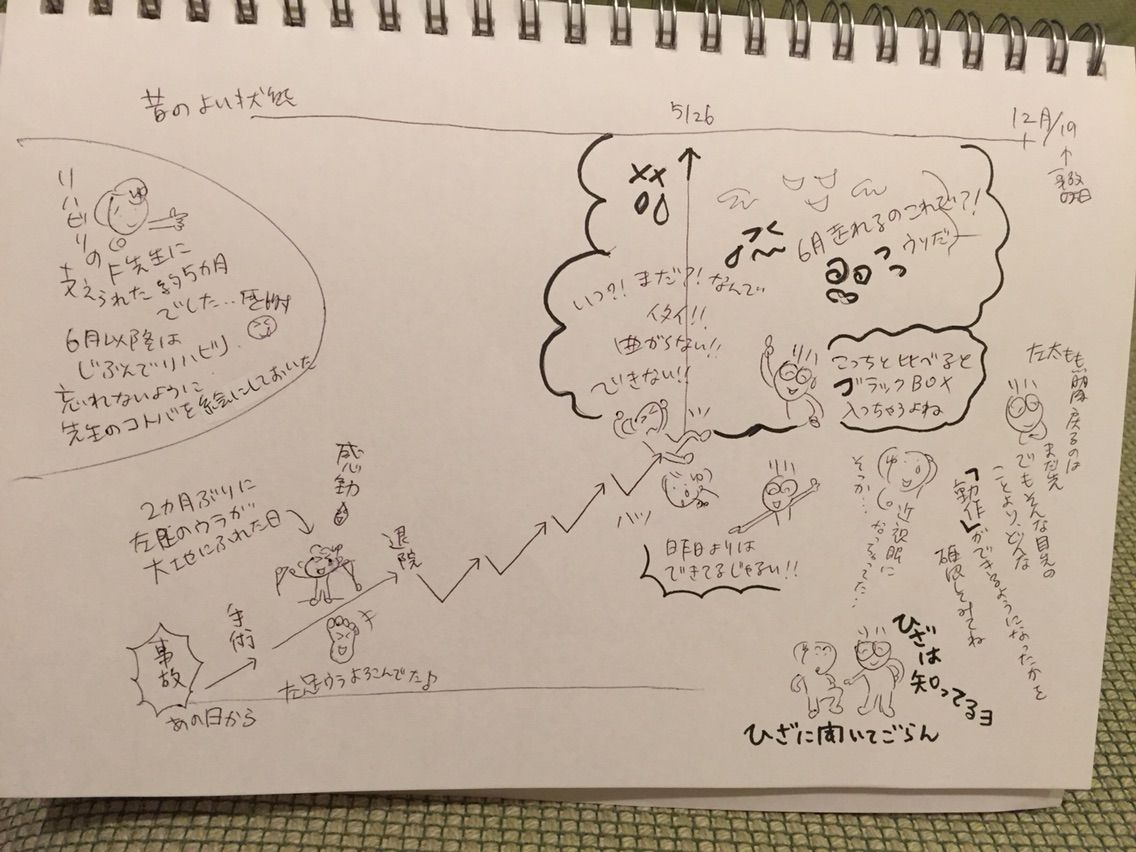 昔のよい状態
5/26
12月/19
↑
事故の日
リハビリの
F先生に
支えられた約5カ月
でした…感謝
6月以降は
じぶんでリハビリ
忘れないように
先生のコトバを絵にしておいた
いつ?!まだ?!なんで
イタイ!!
曲がらない!!
できない!!
6月走れるのこれで?!
ウソだ
こっちと比べると
ブラックBOX
入っちゃうよね
左太もも筋肉戻るのは
まだ先
でもそんな目先の
ことより、どんな
「動作」ができるようになったかを
確認してみてね
近視眼に
なっちゃってた…
そうか…
ハッ
昨日よりは
できてるじゃない!!
感動
2カ月ぶりに
左足のウラが
大地にふれた日
退院
手術
事故
あの日から
左足ウラよろこんでた♪
ひざは
知ってるヨ
ひざに聞いてごらん